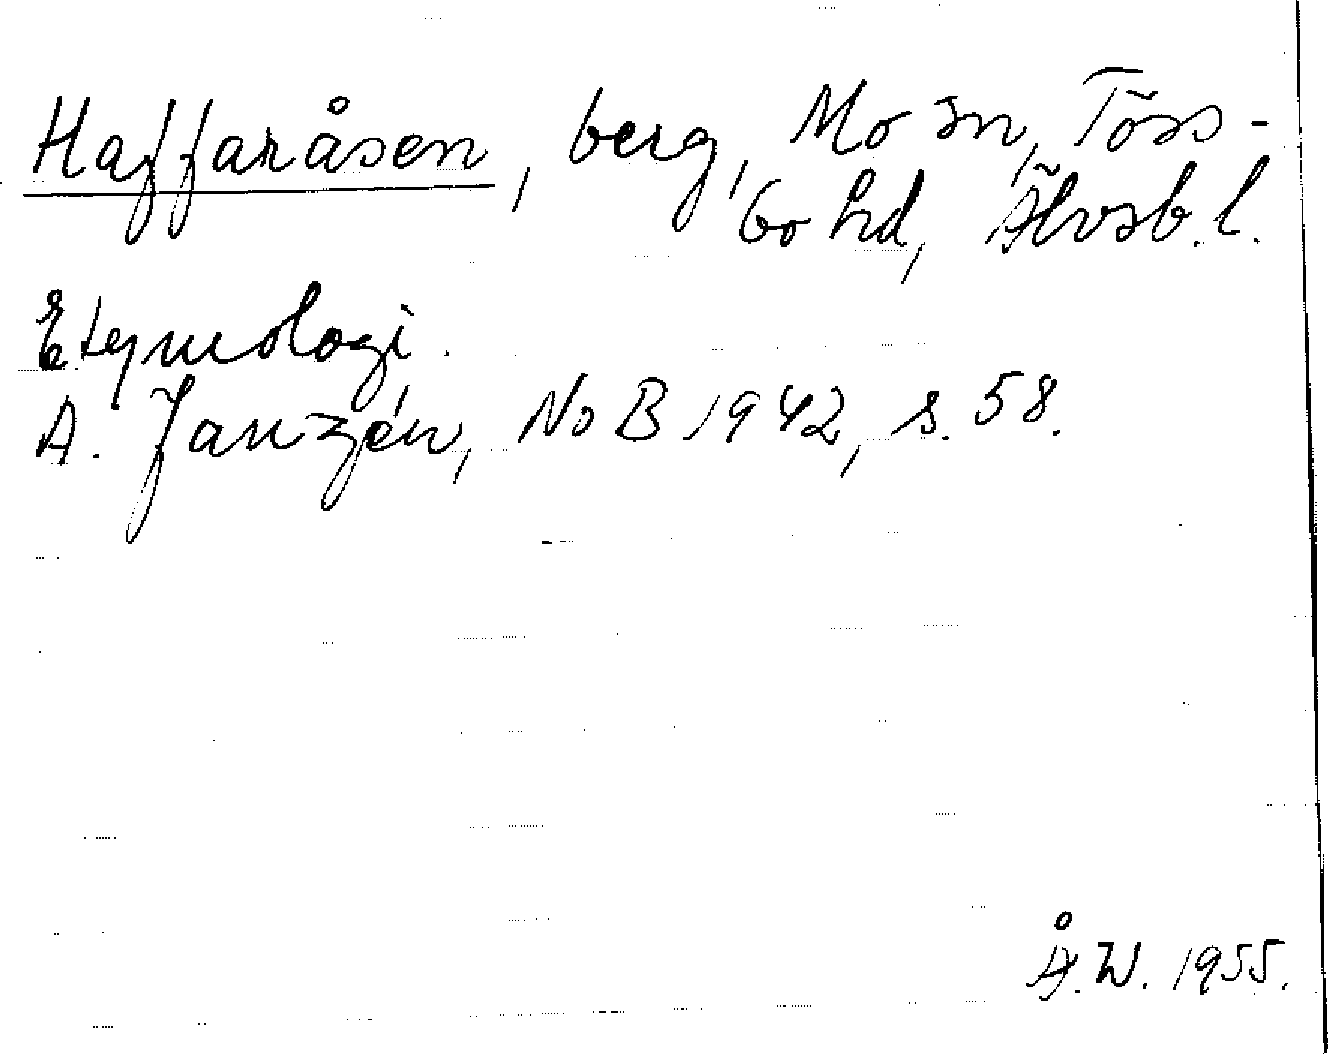 Haffaråsen, berg, Mo sn, Töss-
bo hd, Älvsb. l.
Etymologi.
A. Janzén, NoB 1942, s. 58.
Å. W. 1955.